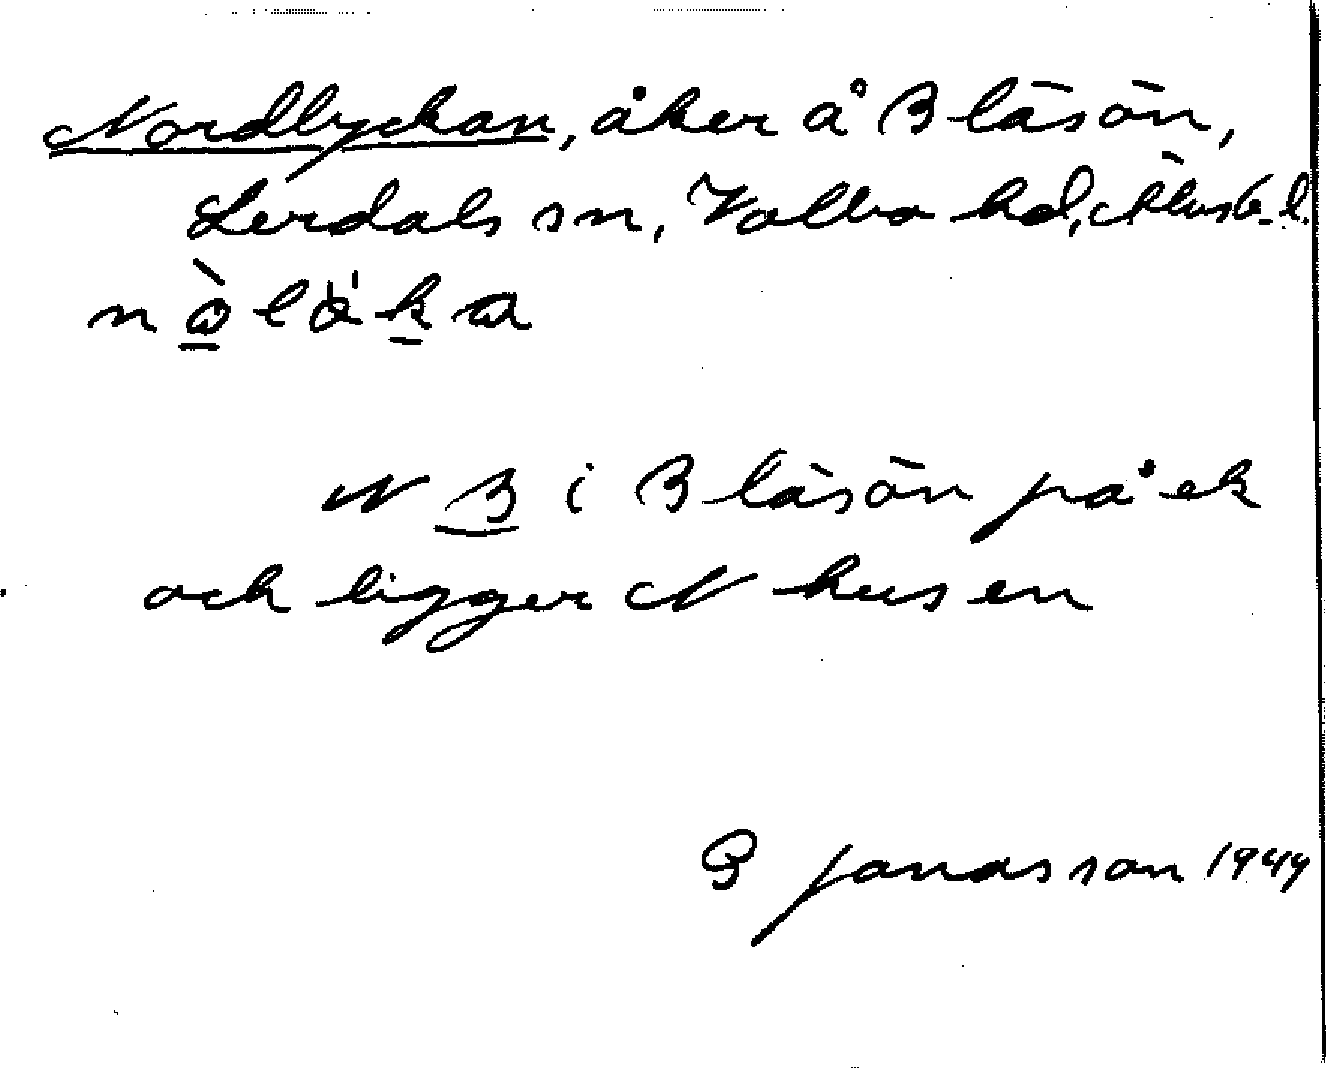 Nordlyckan, åker å Bläsön,
Lerdals sn, Valbo hd, Älvsb. l.
B i Bläsön på ek
och ligger N husen
B Jonasson 1944